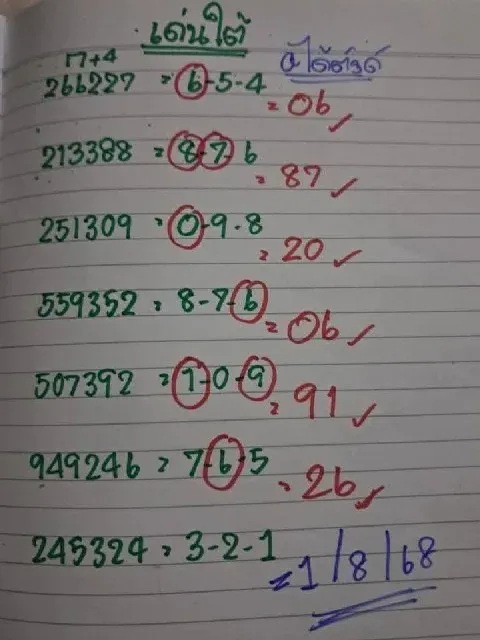 เด่นใต้
17+4
266227 = 6-5-4 = 06 ✓
213388 = 8-7-6 = 87 ✓
251309 = 0-9-8 = 20 ✓
559352 = 8-7-6 = 06 ✓
507392 = 1-0-9 = 91 ✓
949246 = 7-6-5 = 26 ✓
245324 = 3-2-1 = 1/8/68